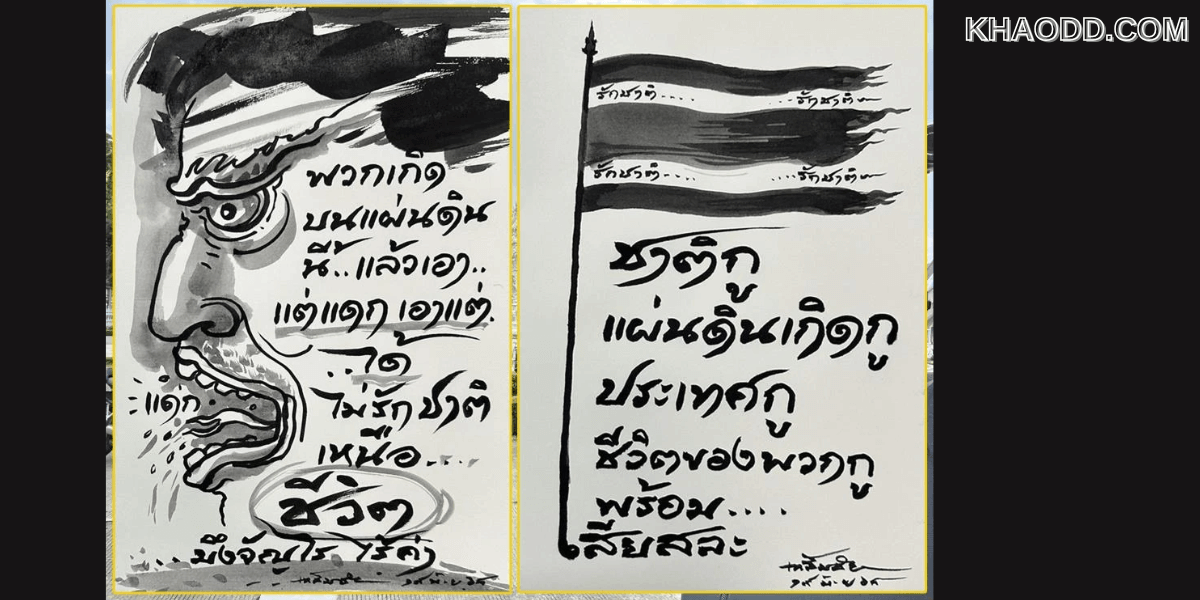 KHAODD.COM
พวกเกิด
บนแผ่นดิน
นี้..แล้วเอา..
แต่แดก เอาแต่.
..ได้
แดก
ไม่รักชาติ
เหนือ....
ชีวิต
...มึงจัญไร ไร้ค่า
เฉลิมชัย
รักชาติ.... ...รักชาติ
รักชาติ.... ....รักชาติ
ชาติกู
แผ่นดินเกิดกู
ประเทศกู
ชีวิตของพวกกู
พร้อม....
เสียสละ
เฉลิมชัย